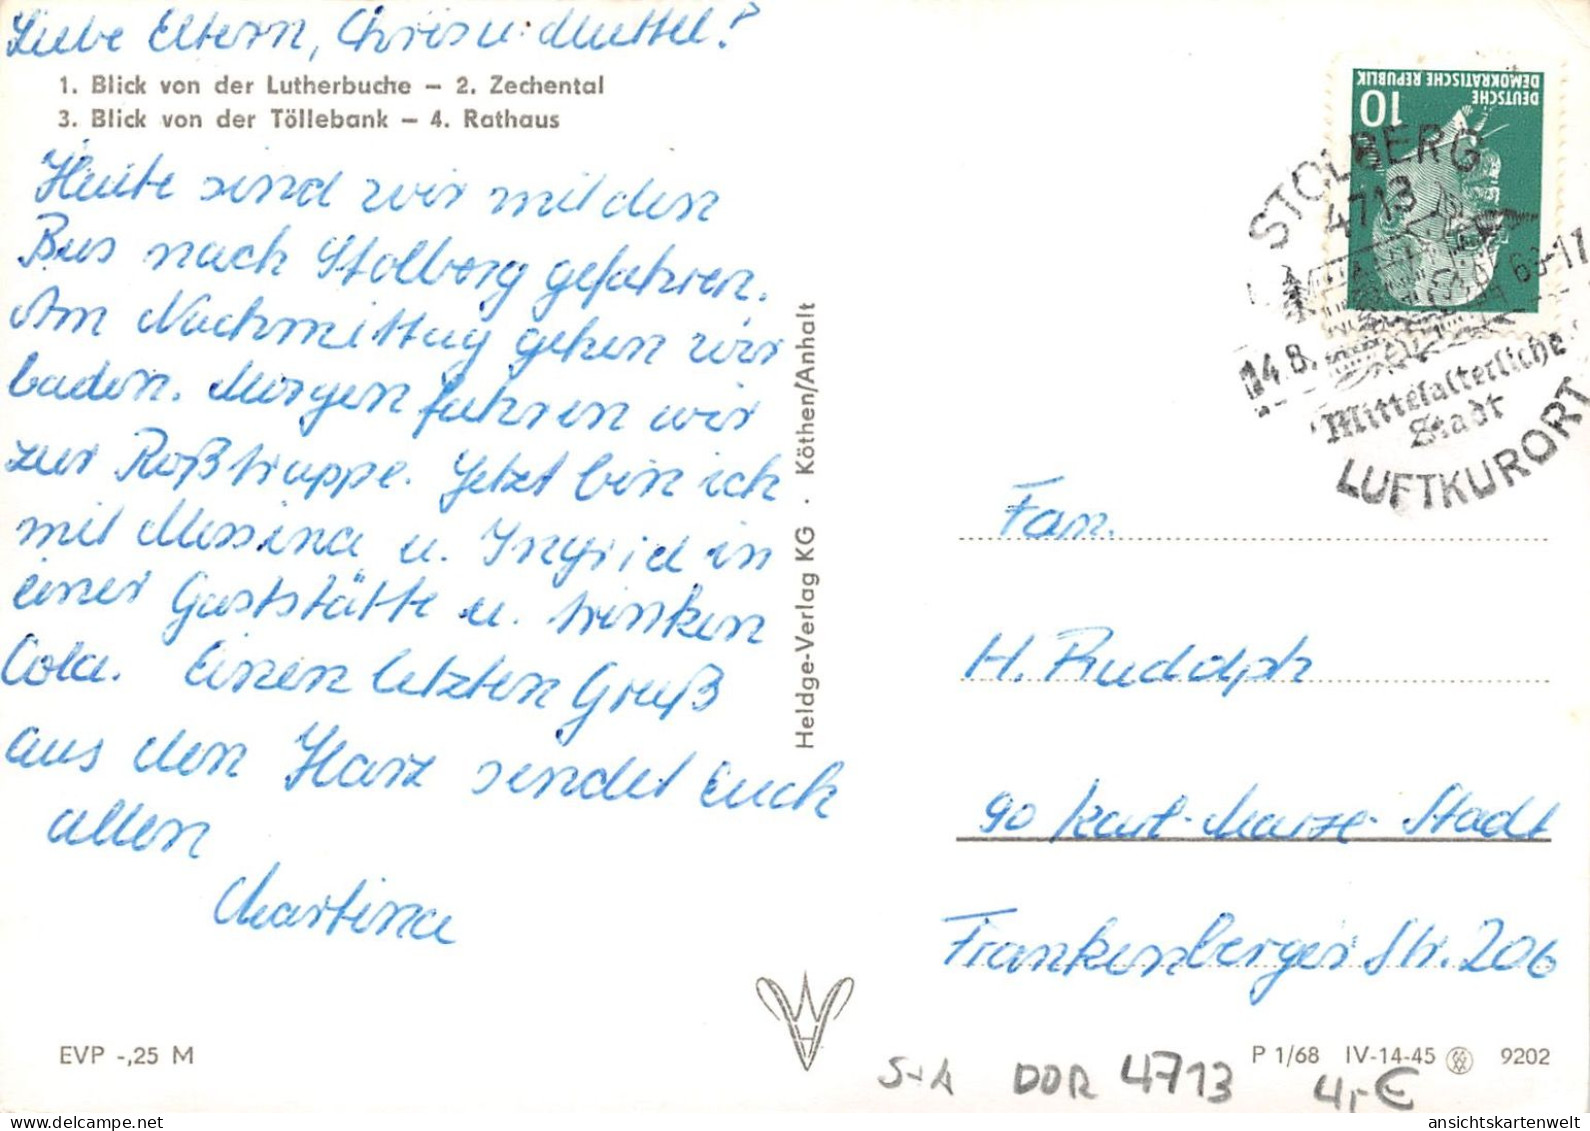 Liebe Eltern, Chris u. Muttel!
1. Blick von der Lutherbuche – 2. Zechental
3. Blick von der Töllebank – 4. Rathaus
Heute sind wir mit den
Bus nach Stolberg gefahren.
Am Nachmittag gehen wir
baden. Morgen fahren wir
zur Roßtrappe. Jetzt bin ich
mit Messina u. Ingrid in
einer Gaststätte u. trinken
Cola. Einen letzten Gruß
aus den Harz sendet Euch
allen
Martina
EVP -,25 M
Heldge-Verlag KG · Köthen/Anhalt
DEUTSCHE
DEMOKRATISCHE REPUBLIK
10
STOLBERG
4713
14.8.
Mittelalterliche
Stadt
LUFTKURORT
Fam.
H. Rudolph
90 Karl-Marx-Stadt
Frankenberger Str. 206
P 1/68 IV-14-45 9202
DDR 4713 4,-€
ansichtskartenwelt